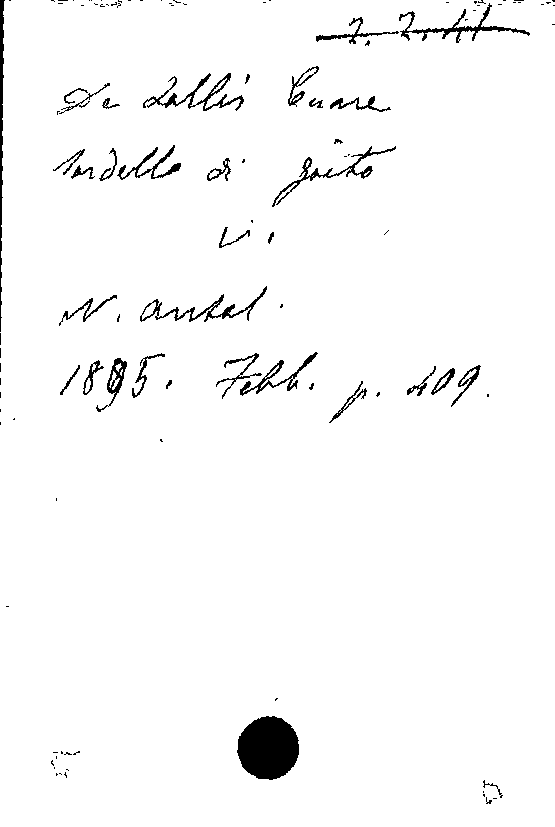 2. 2. 41
De Lollis Cesare
Sordello di Goito
V.
N. Antol.
1895. Febb. p. 409.